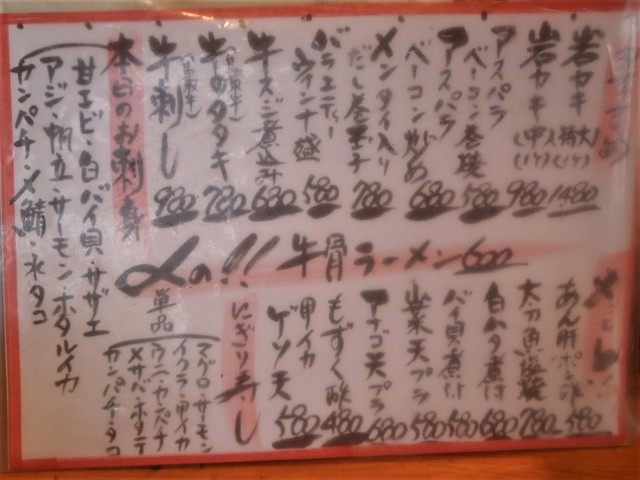 すすめ
岩カキ(特大)(1ケ) 1480
岩カキ(中)(1ケ) 980
アスパラベーコン巻揚 580
アスパラベーコン炒め 680
メンタイ入りだし巻玉子 780
バラエティーウィンナー盛 580
牛スジ煮込み 680
牛のタタキ 780
牛刺し 980
本日のお刺身
甘エビ・白バイ貝・サザエ
アジ・帆立・サーモン・ホタルイカ
カンパチ・〆鯖・水タコ
〆の!!牛骨ラーメン 600
あん肝ポン酢 580
太刀魚塩焼 780
白ガタ煮付 680
バイ貝煮付 580
山菜天プラ 580
アナゴ天プラ 680
もずく酢 480
甲イカゲソ天 580
にぎり寿し
単品
マグロ・サーモン
イクラ・甲イカ
ウニ・カンパチ
〆サバ・ホタテ
カンパチ・タコ